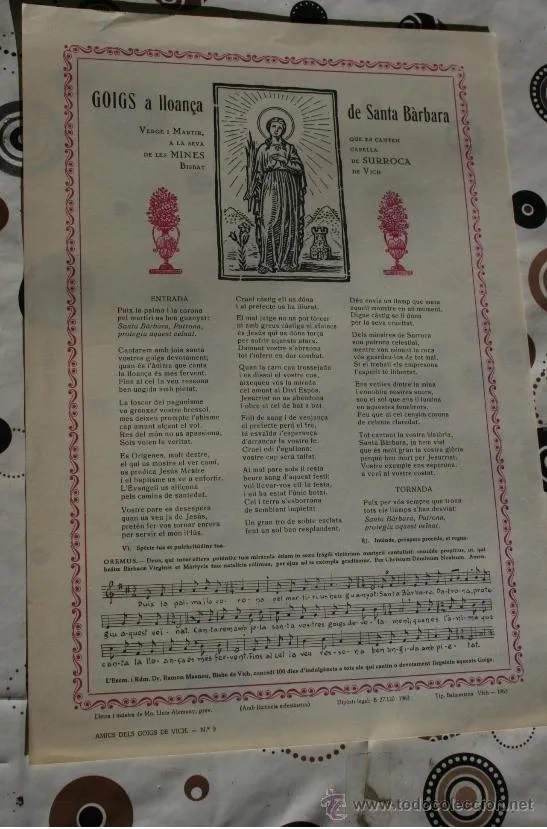 GOIGS a lloança
de Santa Bàrbara
VERGE I MARTIR,
A LA SEVA
DE LES MINES
BISBAT
QUE ES CANTEN
CAPELLA
DE SURROCA
DE VICH
ENTRADA
Puix la palma i la corona
pel martiri us heu guanyat:
Santa Bàrbara, Patrona,
protegiu aquest veïnat.
Cantarem amb joia santa
vostres goigs devotament;
quan és l'ànima que canta
la lloança és més fervent.
Fins al cel la veu ressona
ben ungida amb pietat.
La foscor del paganisme
va gronxar vostre bressol,
mes deixeu promple l'abisme
cap amunt alçant el vol.
Res del món no us apassiona,
Sols voleu la veritat.
Es Orígenes, molt dextre,
el qui us mostra el ver camí,
us predica Jesús Mestre
i el baptisme us ve a enfortir.
L'Evangeli us alliçona
pels camins de santedat.
Vostre pare es desespera
quan us veu ja de Jesús,
pretén fer-vos tornar enrera
per servir el món il·lús.
Cruel càstig ell us dóna
i al prefecte us ha lliurat.
El mal jutge no us pot tòrcer
ni amb greus càstigs ni afalacs
és Jesús qui us dóna força
per sofrir aquests atacs.
Damunt vostre s'abraona
tot l'infern en dur combat.
Quan la carn cau trossejada
i es dissol el vostre cos,
aixequeu vós la mirada
cel amunt al Diví Espòs.
Jesucrist no us abandona
i obre el cel de bat a bat
Foll de sang i de venjança
el prefecte perd el tre,
té esvaïda l'esperança
d'arrancar la vostra fe.
Cruel edi l'agullona:
vostre cap serà tallat.
Al mal pare sols li resta
heure sang d'aquest festí:
vol llevar-vos ell la testa,
i en ha estat l'únic botxí.
Cel i terra s'esborrona
de semblant impietat
Un gran tro de sobte esclata
fent un sol ben resplendent.
Déu envia un llamp que mata
aquell monstre en un moment.
Digne càstig se li dóna
per la seva crueltat.
Dels minaires de Surroca
sou patrona celestial,
mentre van minant la roca
vós guardeu-los de tot mal.
Si el treball els empresona
l'esperit té llibertat.
Ens vetlleu dintre la mina
i enmobliu nostres suors,
sou el sol que ens il·lumina
en aquestes fonadors.
Feu que di cel cenyim corona
de celeste claredat.
Tot cantant la vostra història,
Santa Bàrbara, ja hem vist
que és molt gran la vostra glòria
perquè heu mort per Jesucrist.
Vostre exemple ens esperona
a servir-lo amb pietat.
TORNADA
Puix per vós sempre que trona
tots els llamps s'han desviat:
Santa Bàrbara, Patrona,
protegiu aquest veïnat.
V). Spécie tua et pulchritúdine tua.
R). Inténde, próspere procéde, et regna.
OREMUS.—Deus, qui inter cétera poténtiæ tuæ mirácula étiam in sexu frágili victóriam martýrii contulísti: concéde propítius, ut, qui
beátæ Bárbaræ Vírginis et Mártyris tuæ natalícia cólimus, per ejus ad te exémpla gradiámur. Per Christum Dóminum Nostrum. Amén.
Puix la pal-ma i la co - ro - na pel mar-ti-ri us heu gua-nyat: San-ta Bàr-ba-ra, Pa-tro-na, prote
giu a-quest veï - nat. Can-ta-rem amb jo-ia san-ta vos-tres goigs de-vo-ta-ment; quan és l'à-ni-ma que
can-ta la llo - an-ça és més fer-vent. Fins al cel la veu res-so - na ben un-gi-da amb pi-e - tat.
L'Excm. i Rdm. Dr. Ramon Masnou, Bisbe de Vich, concedí 100 dies d'indulgència a tots els qui cantin o devotament llegeixin aquests Goigs.
Lletra i música de Mn. Lluís Alemany, prev.
(Amb llicència eclesiàstica)
Dipòsit legal: B 27.110 - 1963
Tip. Balmesiana Vich - 1963
AMICS DELS GOIGS DE VICH. — N.º 9
www.todocoleccion.net